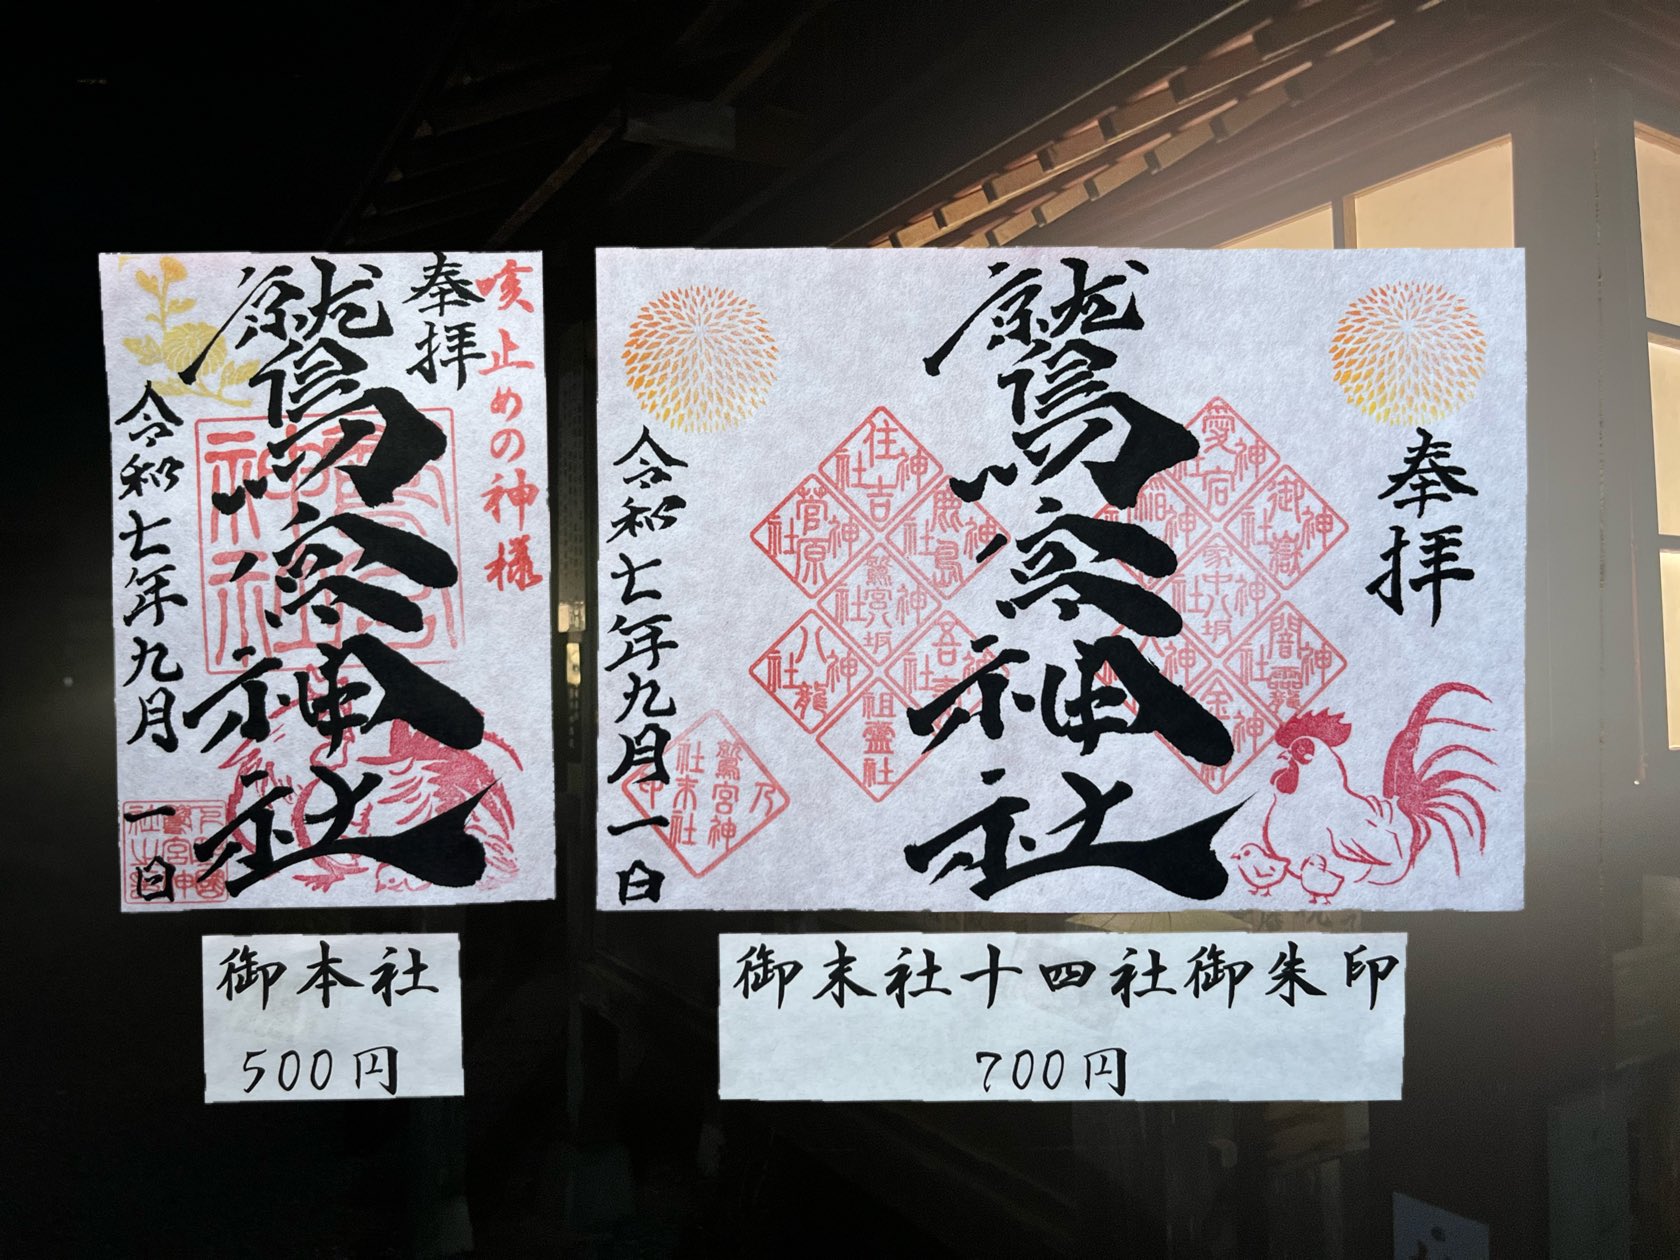 咳止めの神様
奉拝
鷲宮神社
令和七年九月一日
御本社
500円
奉拝
鷲宮神社
令和七年九月一日
愛宕神社
御嶽神社
闇龗神社
家中八坂神社
住吉神社
鹿島神社
菅原神社
鷲宮八坂神社
八龍神社
祖霊社
鷲宮神社末社
御末社十四社御朱印
700円